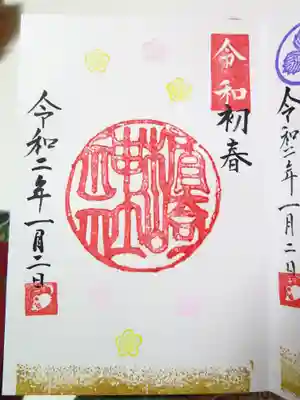 令和二年一月二日
令和初春
令和二年一月二日